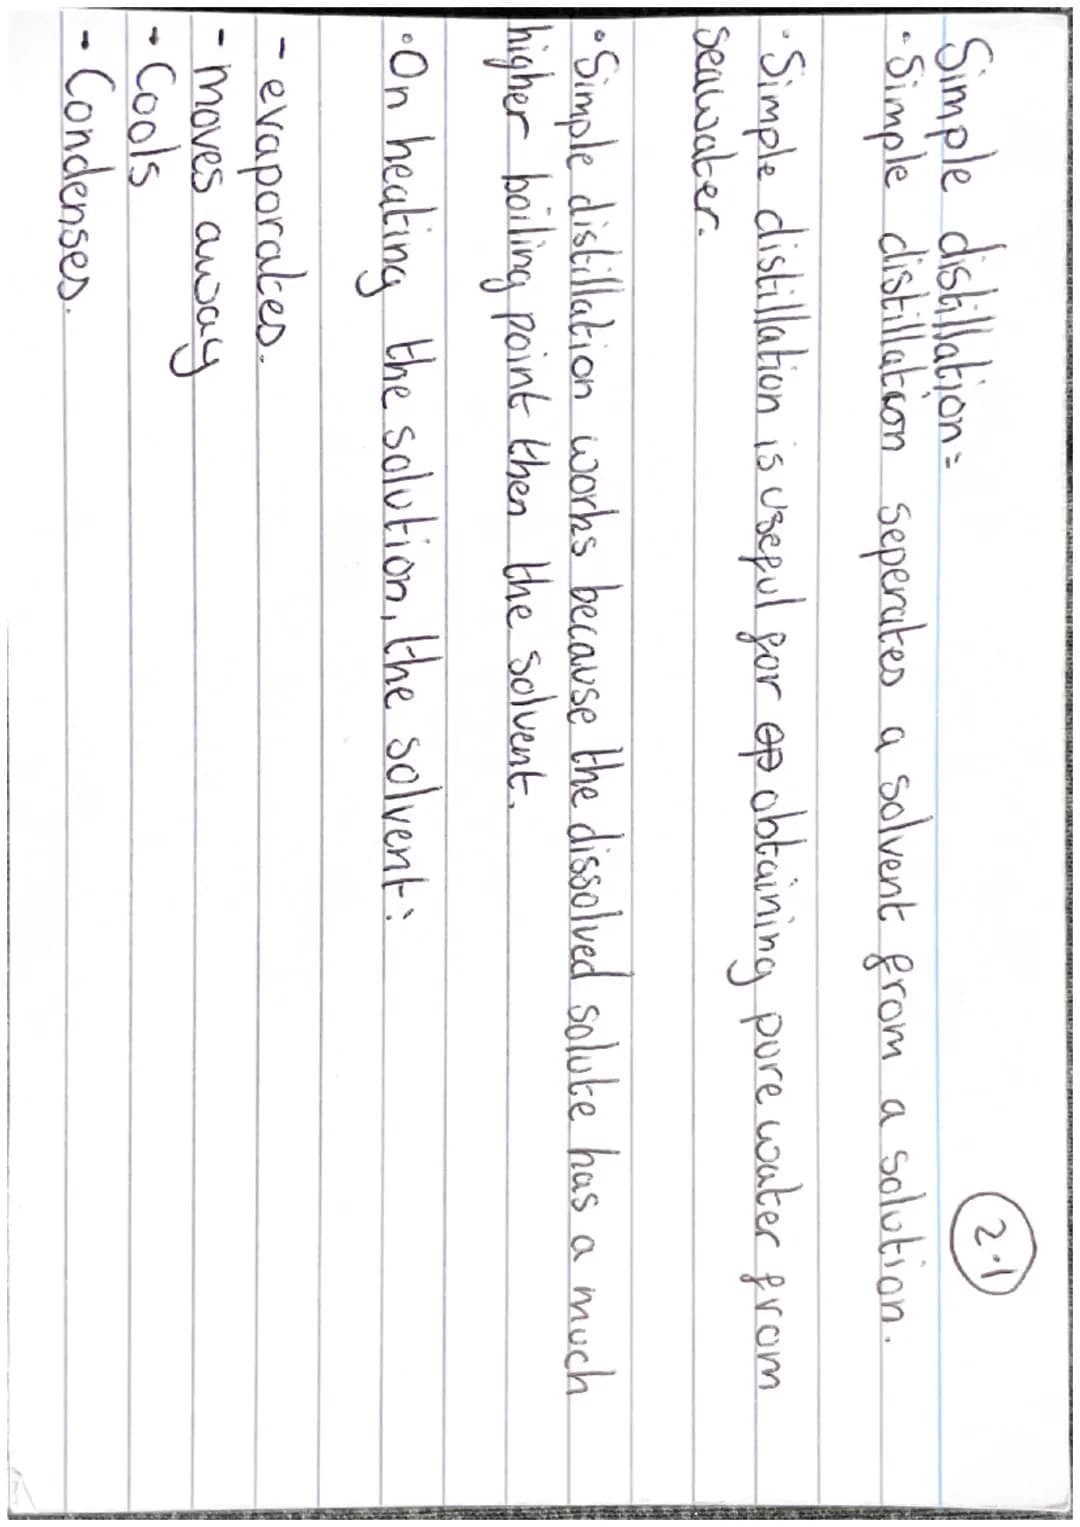 2.1
Simple distillation=
• Simple distillation seperates a solvent from a solution.
• Simple distillation is useful for obtaining pure water from
seawater.
• Simple distillation works because the dissolved solute has a much
higher boiling point then the solvent.
• On heating the solution, the solvent:
- evaporates.
- moves away
- Cools
- Condenses.